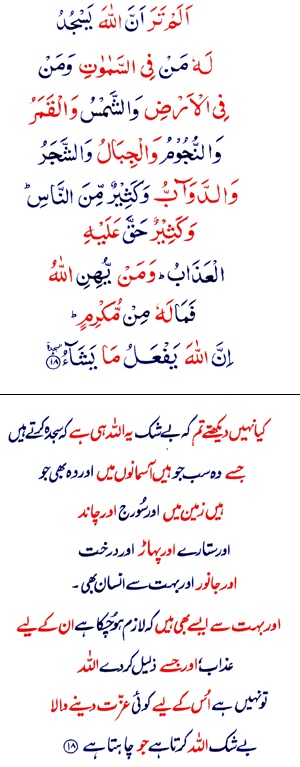 اَلَمۡ تَرَ اَنَّ اللّٰهَ يَسۡجُدُ
لَهٗ مَنۡ فِى السَّمٰوٰتِ وَمَنۡ
فِى الۡاَرۡضِ وَالشَّمۡسُ وَالۡقَمَرُ
وَالنُّجُوۡمُ وَالۡجِبَالُ وَالشَّجَرُ
وَالدَّوَآبُّ وَكَثِيۡرٌ مِّنَ النَّاسِ‌ؕ
وَكَثِيۡرٌ حَقَّ عَلَيۡهِ
الۡعَذَابُ‌ؕ وَمَنۡ يُّهِنِ اللّٰهُ
فَمَا لَهٗ مِنۡ مُّكۡرِمٍ‌ؕ
اِنَّ اللّٰهَ يَفۡعَلُ مَا يَشَآءُ ۩ ﴿۱۸﴾
کیا نہیں دیکھتے تم کہ بے شک یہ اللہ ہی ہے کہ سجدہ کرتے ہیں
جسے وہ سب جو ہیں آسمانوں میں اور وہ بھی جو
ہیں زمین میں اور سُورج اور چاند
اور ستارے اور پہاڑ اور درخت
اور جانور اور بہت سے انسان بھی۔
اور بہت سے ایسے بھی ہیں کہ لازم ہو چُکا ہے ان کے لیے
عذاب اور جسے ذلیل کر دے اللہ
تو نہیں ہے اُس کے لیے کوئی عزّت دینے والا
بے شک اللہ کرتا ہے جو چاہتا ہے ﴿۱۸﴾